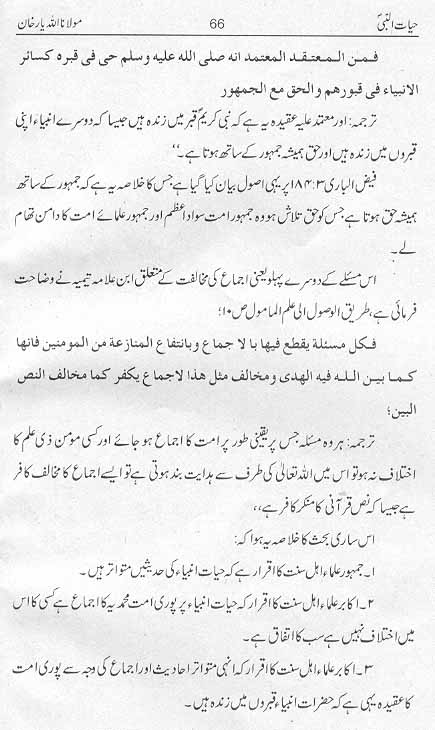 حیات النبیؐ 66 مولانا اللہ یار خان
فمن المعتقد المعتمد انه صلى الله عليه وسلم حى فى قبره كسائر
الانبياء فى قبورهم والحق مع الجمهور
ترجمہ: اور معتمد علیہ عقیدہ یہ ہے کہ نبی کریمؐ قبر میں زندہ ہیں جیسا کہ دوسرے انبیاء اپنی
قبروں میں زندہ ہیں اور حق ہمیشہ جمہور کے ساتھ ہوتا ہے۔‘‘
فیض الباری ۱۸۴:۳ پر یہی اصول بیان کیا گیا ہے جس کا خلاصہ یہ ہے کہ جمہور کے ساتھ
ہمیشہ حق ہوتا ہے جس کو حق تلاش ہو وہ جمہور امت سواد اعظم اور جمہور علمائے امت کا دامن تھام
لے۔
اس مسئلے کے دوسرے پہلو یعنی اجماع کی مخالفت کے متعلق ابن علامہ تیمیہ نے وضاحت
فرمائی ہے، طریق الوصول الی علم المامول ص ۱۰؛
فكل مسئلة يقطع فيها با لا جماع وبانتفاع المنازعة من المومنين فانها
كما بين الله فيه الهدى ومخالف مثل هذا لاجماع يكفر كما مخالف النص
البين؛
ترجمہ: ہر وہ مسئلہ جس پر یقینی طور پر امت کا اجماع ہو جائے اور کسی مومن ذی علم کا
اختلاف نہ ہو تو اس میں اللہ تعالیٰ کی طرف سے ہدایت بند ہوتی ہے تو ایسے اجماع کا مخالف کافر
ہے جیسا کہ نص قرآنی کا منکر کافر ہے،،
اس ساری بحث کا خلاصہ یہ ہوا کہ:
۱۔ جمہور علماء اہل سنت کا اقرار ہے کہ حیات انبیاء کی حدیثیں متواتر ہیں۔
۲۔ اکابر علماء اہل سنت کا اقرار کہ حیات انبیاء پر پوری امت محمدیہ کا اجماع ہے کسی کا اس
میں اختلاف نہیں ہے سب کا اتفاق ہے۔
۳۔ اکابر علماء اہل سنت کا اقرار کہ انہی متواتر احادیث اور اجماع کی وجہ سے پوری امت
کا عقیدہ یہی ہے کہ حضرات انبیاء قبروں میں زندہ ہیں۔